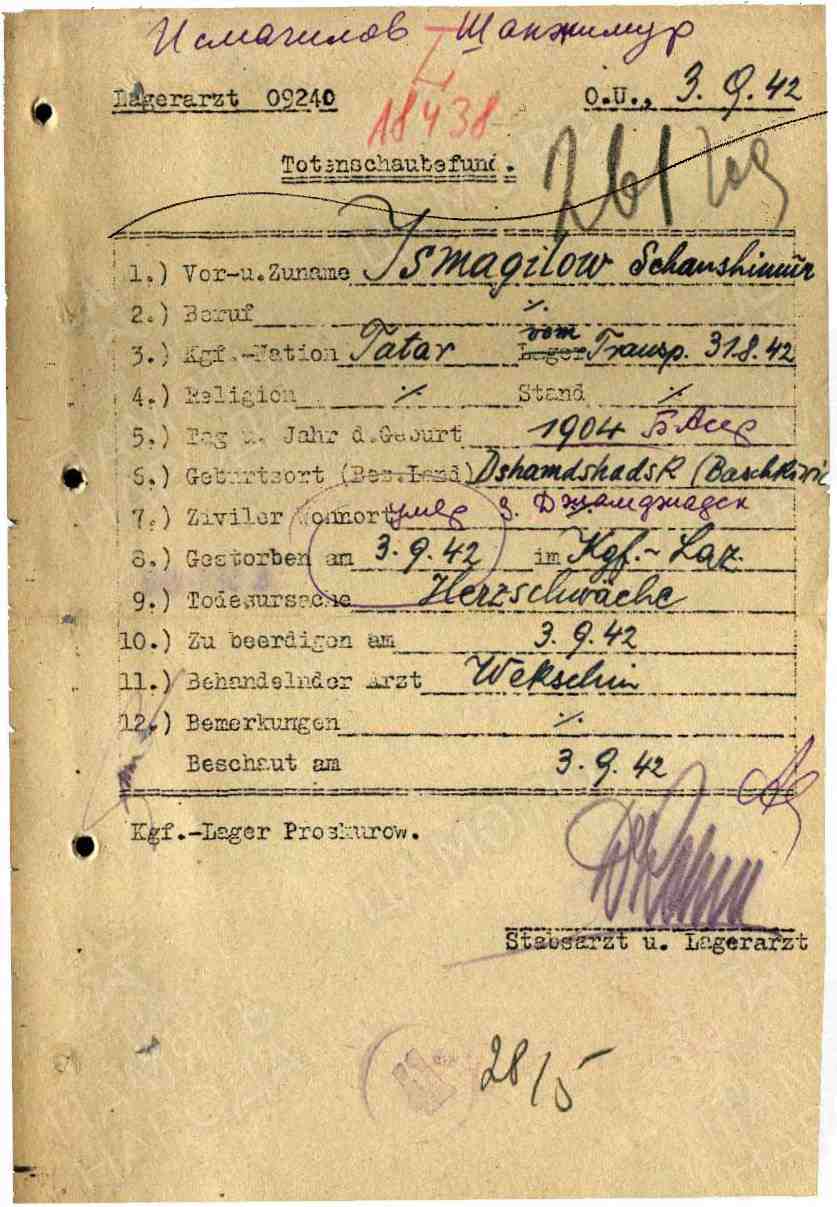 Исмагилов Шанжимур
I
Lagerarzt 09240 O.U., 3.9.42
18438
Totenschaubefund.
261
1.) Vor-u.Zuname Ismagilow Schanshimur
2.) Beruf ./.
3.) Kgf.-Nation Tatar Lager vom Transp. 31.8.42
4.) Religion ./. Stand ./.
5.) Tag u. Jahr d.Geburt 1904 БАсср
6.) Geburtsort (Bes.Land) Dshamdshadsk (Baschkirie
7.) Ziviler Wohnort умер з. Джамджадск
8.) Gestorben am 3.9.42 im Kgf.-Laz.
9.) Todesursache Herzschwäche
10.) Zu beerdigen am 3.9.42
11.) Behandelnder Arzt Wekschin
12.) Bemerkungen ./.
Beschaut am 3.9.42
Kgf.-Lager Proskurow.
Stabsarzt u. Lagerarzt
28/5